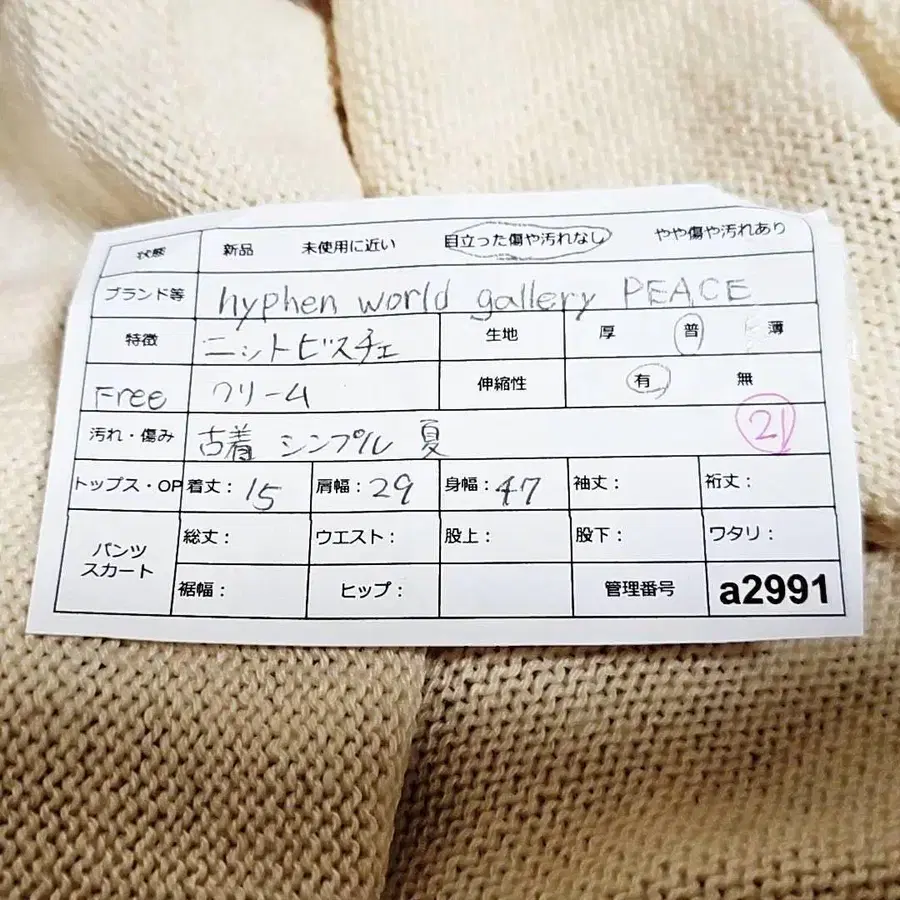 状態 新品 未使用に近い 目立った傷や汚れなし やや傷や汚れあり
ブランド等 hyphen world gallery PEACE
特徴 ニットビスチェ 生地 厚 普 薄
Free クリーム 伸縮性 有 無
汚れ・傷み 古着 シンプル 夏 21
トップス・OP 着丈: 15 肩幅: 29 身幅: 47 袖丈: 裄丈:
パンツ スカート 総丈: ウエスト: 股上: 股下: ワタリ:
裾幅: ヒップ: 管理番号 a2991